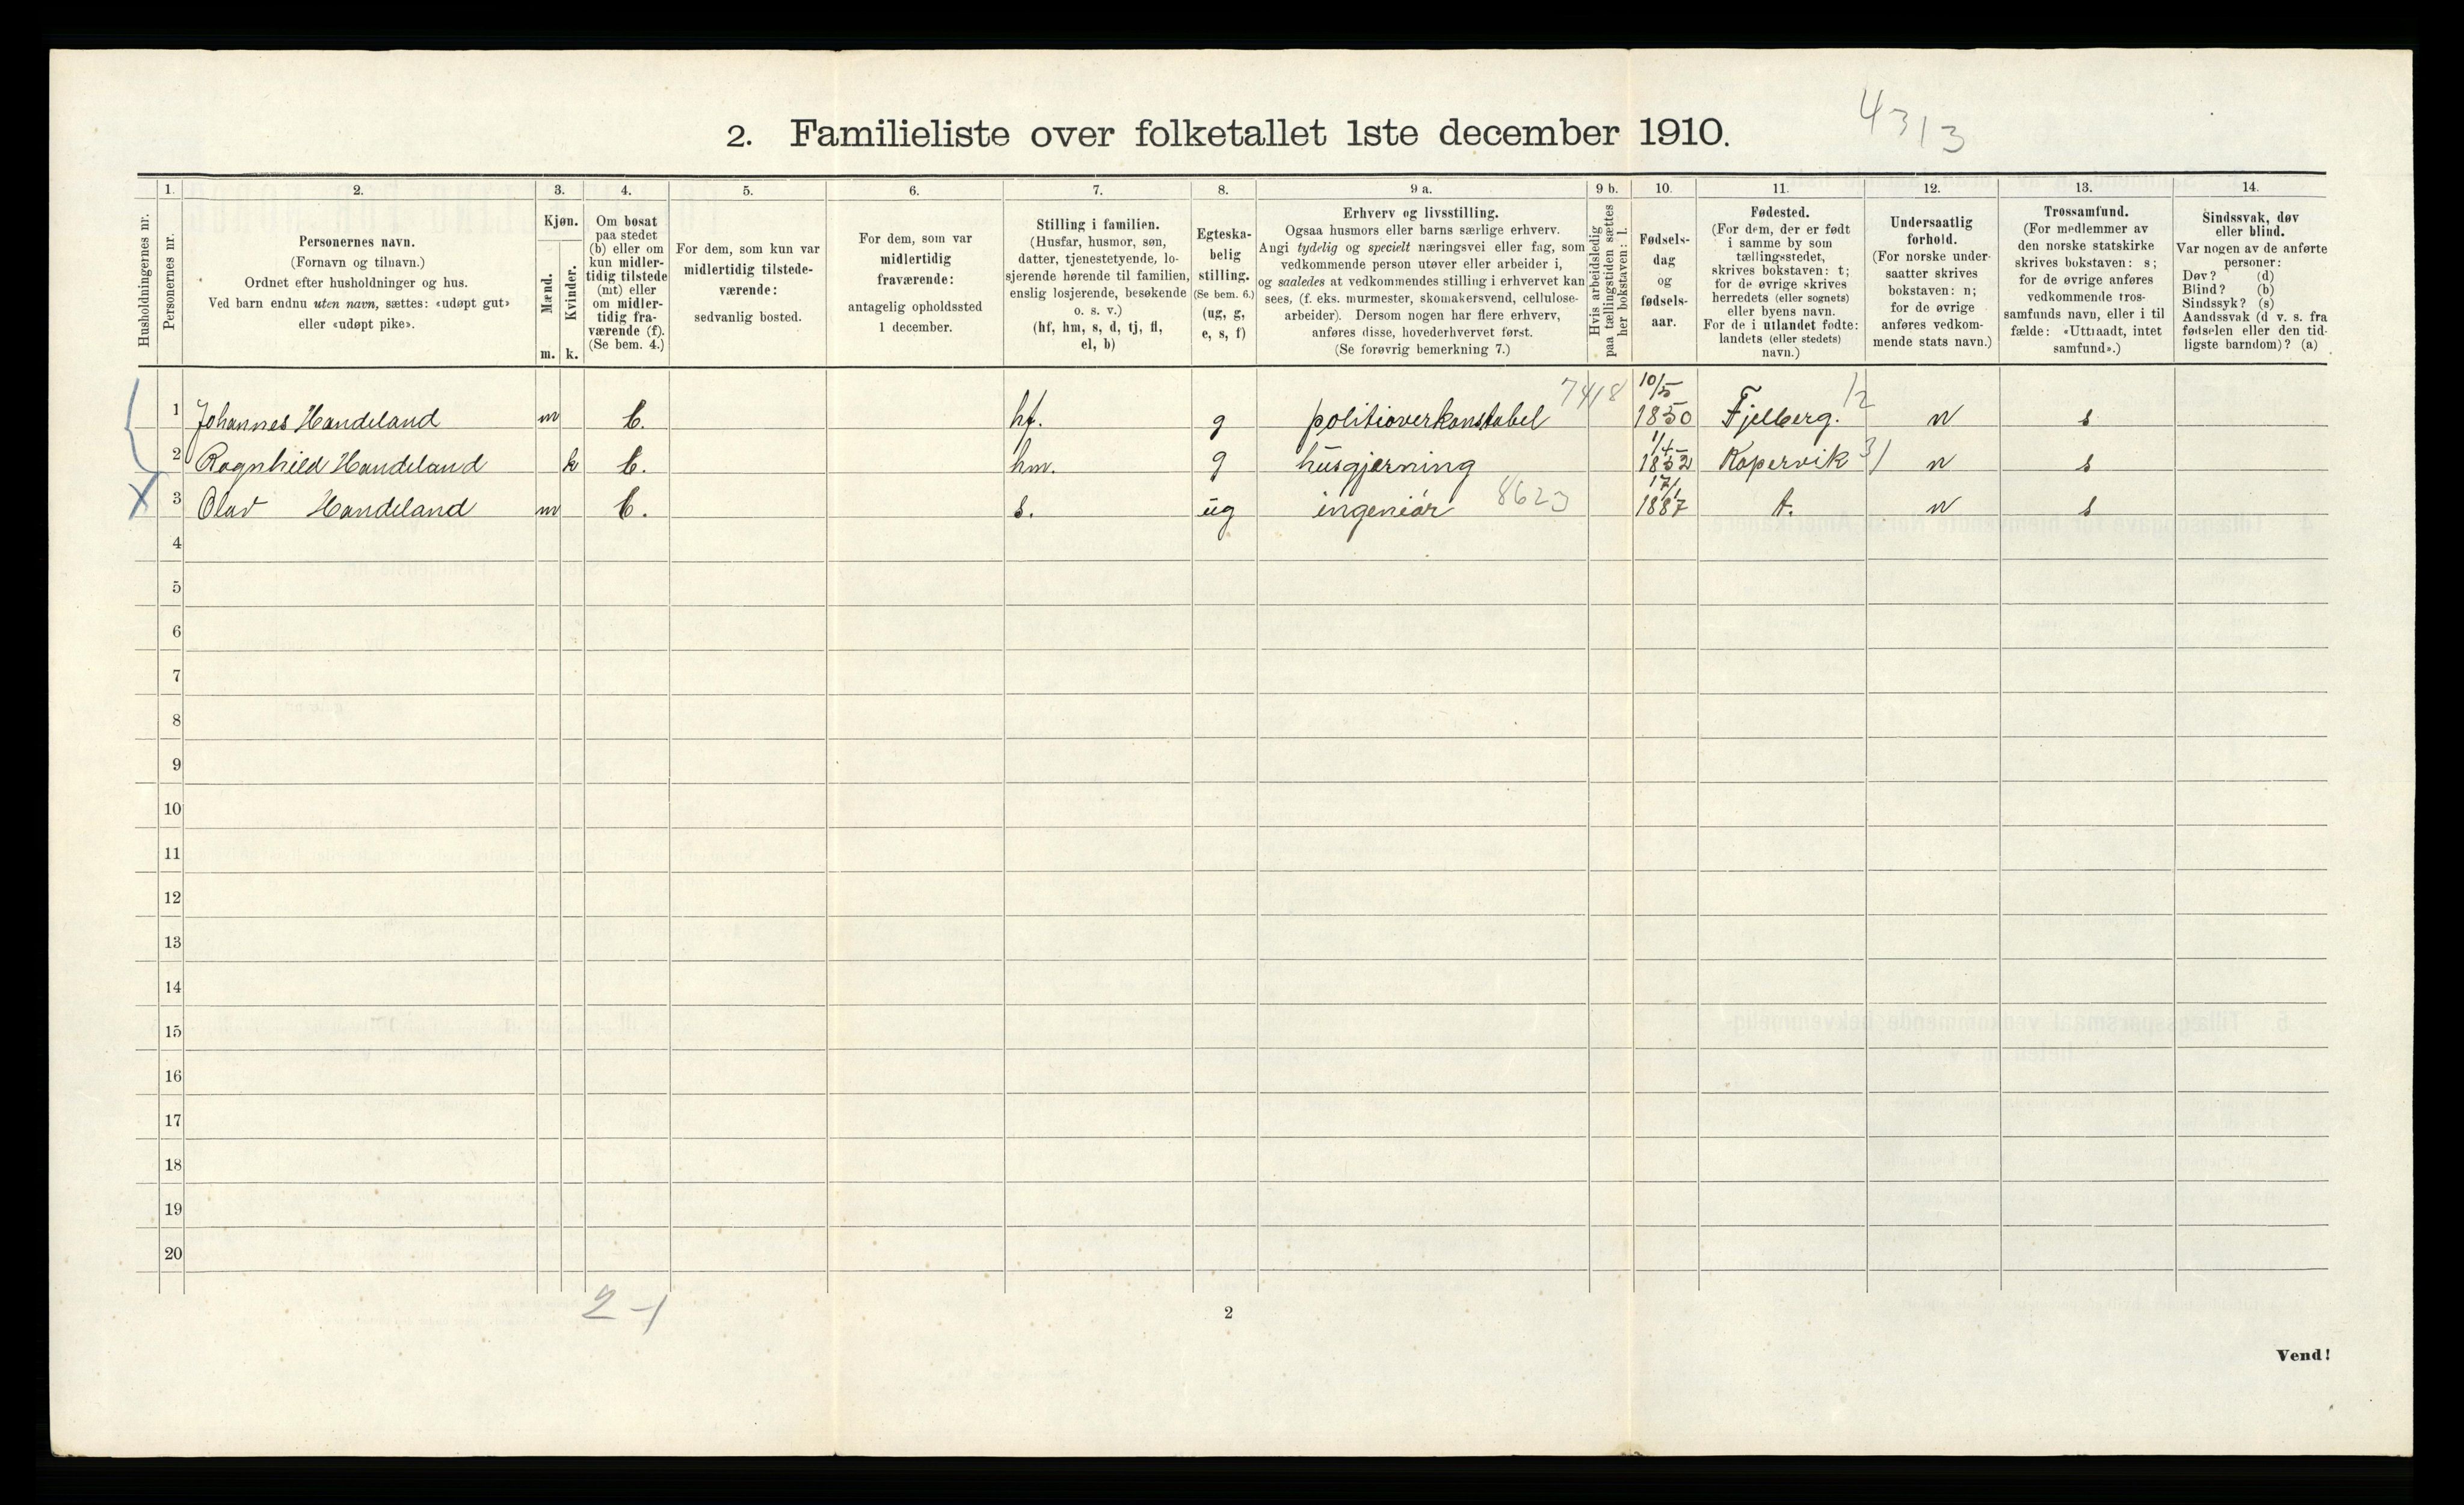 4313
2. Familieliste over folketallet 1ste december 1910.
Husholdningernes nr.
1.
Personernes nr.
2.
Personernes navn.
(Fornavn og tilnavn.)
Ordnet efter husholdninger og hus.
Ved barn endnu uten navn, sættes: «udøpt gut»
eller «udøpt pike».
3.
Kjøn.
Mænd.
Kvinder.
m. k.
4.
Om bosat
paa stedet
(b) eller om
kun midler-
tidig tilstede
(mt) eller
om midler-
tidig fra-
værende (f).
(Se bem. 4.)
5.
For dem, som kun var
midlertidig tilstede-
værende:
sedvanlig bosted.
6.
For dem, som var
midlertidig
fraværende:
antagelig opholdssted
1 december.
7.
Stilling i familien.
(Husfar, husmor, søn,
datter, tjenestetyende, lo-
sjerende hørende til familien,
enslig losjerende, besøkende
o. s. v.)
(hf, hm, s, d, tj, fl,
el, b)
8.
Egteska-
belig
stilling.
(Se bem. 6.)
(ug, g,
e, s, f)
9 a.
Erhverv og livsstilling.
Ogsaa husmors eller barns særlige erhverv.
Angi tydelig og specielt næringsvei eller fag, som
vedkommende person utøver eller arbeider i,
og saaledes at vedkommendes stilling i erhvervet kan
sees, (f. eks. murmester, skomakersvend, cellulose-
arbeider). Dersom nogen har flere erhverv,
anføres disse, hovederhvervet først.
(Se forøvrig bemerkning 7.)
9 b.
Hvis arbeidsledig
paa tællingstiden sættes
her bokstaven: l.
10.
Fødsels-
dag
og
fødsels-
aar.
11.
Fødested.
(For dem, der er født
i samme by som
tællingsstedet,
skrives bokstaven: t;
for de øvrige skrives
herredets (eller sognets)
eller byens navn.
For de i utlandet fødte:
landets (eller stedets)
navn.)
12.
Undersaatlig
forhold.
(For norske under-
saatter skrives
bokstaven: n;
for de øvrige
anføres vedkom-
mende stats navn.)
13.
Trossamfund.
(For medlemmer av
den norske statskirke
skrives bokstaven: s;
for de øvrige anføres
vedkommende tros-
samfunds navn, eller i til
fælde: «Uttraadt, intet
samfund».)
14.
Sindssvak, døv
eller blind.
Var nogen av de anførte
personer:
Døv? (d)
Blind? (b)
Sindssyk? (s)
Aandssvak (d v. s. fra
fødselen eller den tid-
ligste barndom)? (a)
1 Johannes Handeland m b. hf. g politioverkonstabel 7418 10/5 1850 Fjelberg. 12 n s
2 Ragnhild Handeland k b. hm. g husgjerning 1/4 1852 Kopervik 31 n s
3 Olav Handeland m b. s. ug ingeniør 8623 17/1 1887 t. n s
4
5
6
7
8
9
10
11
12
13
14
15
16
17
18
19
20
2 - 1
2
Vend!